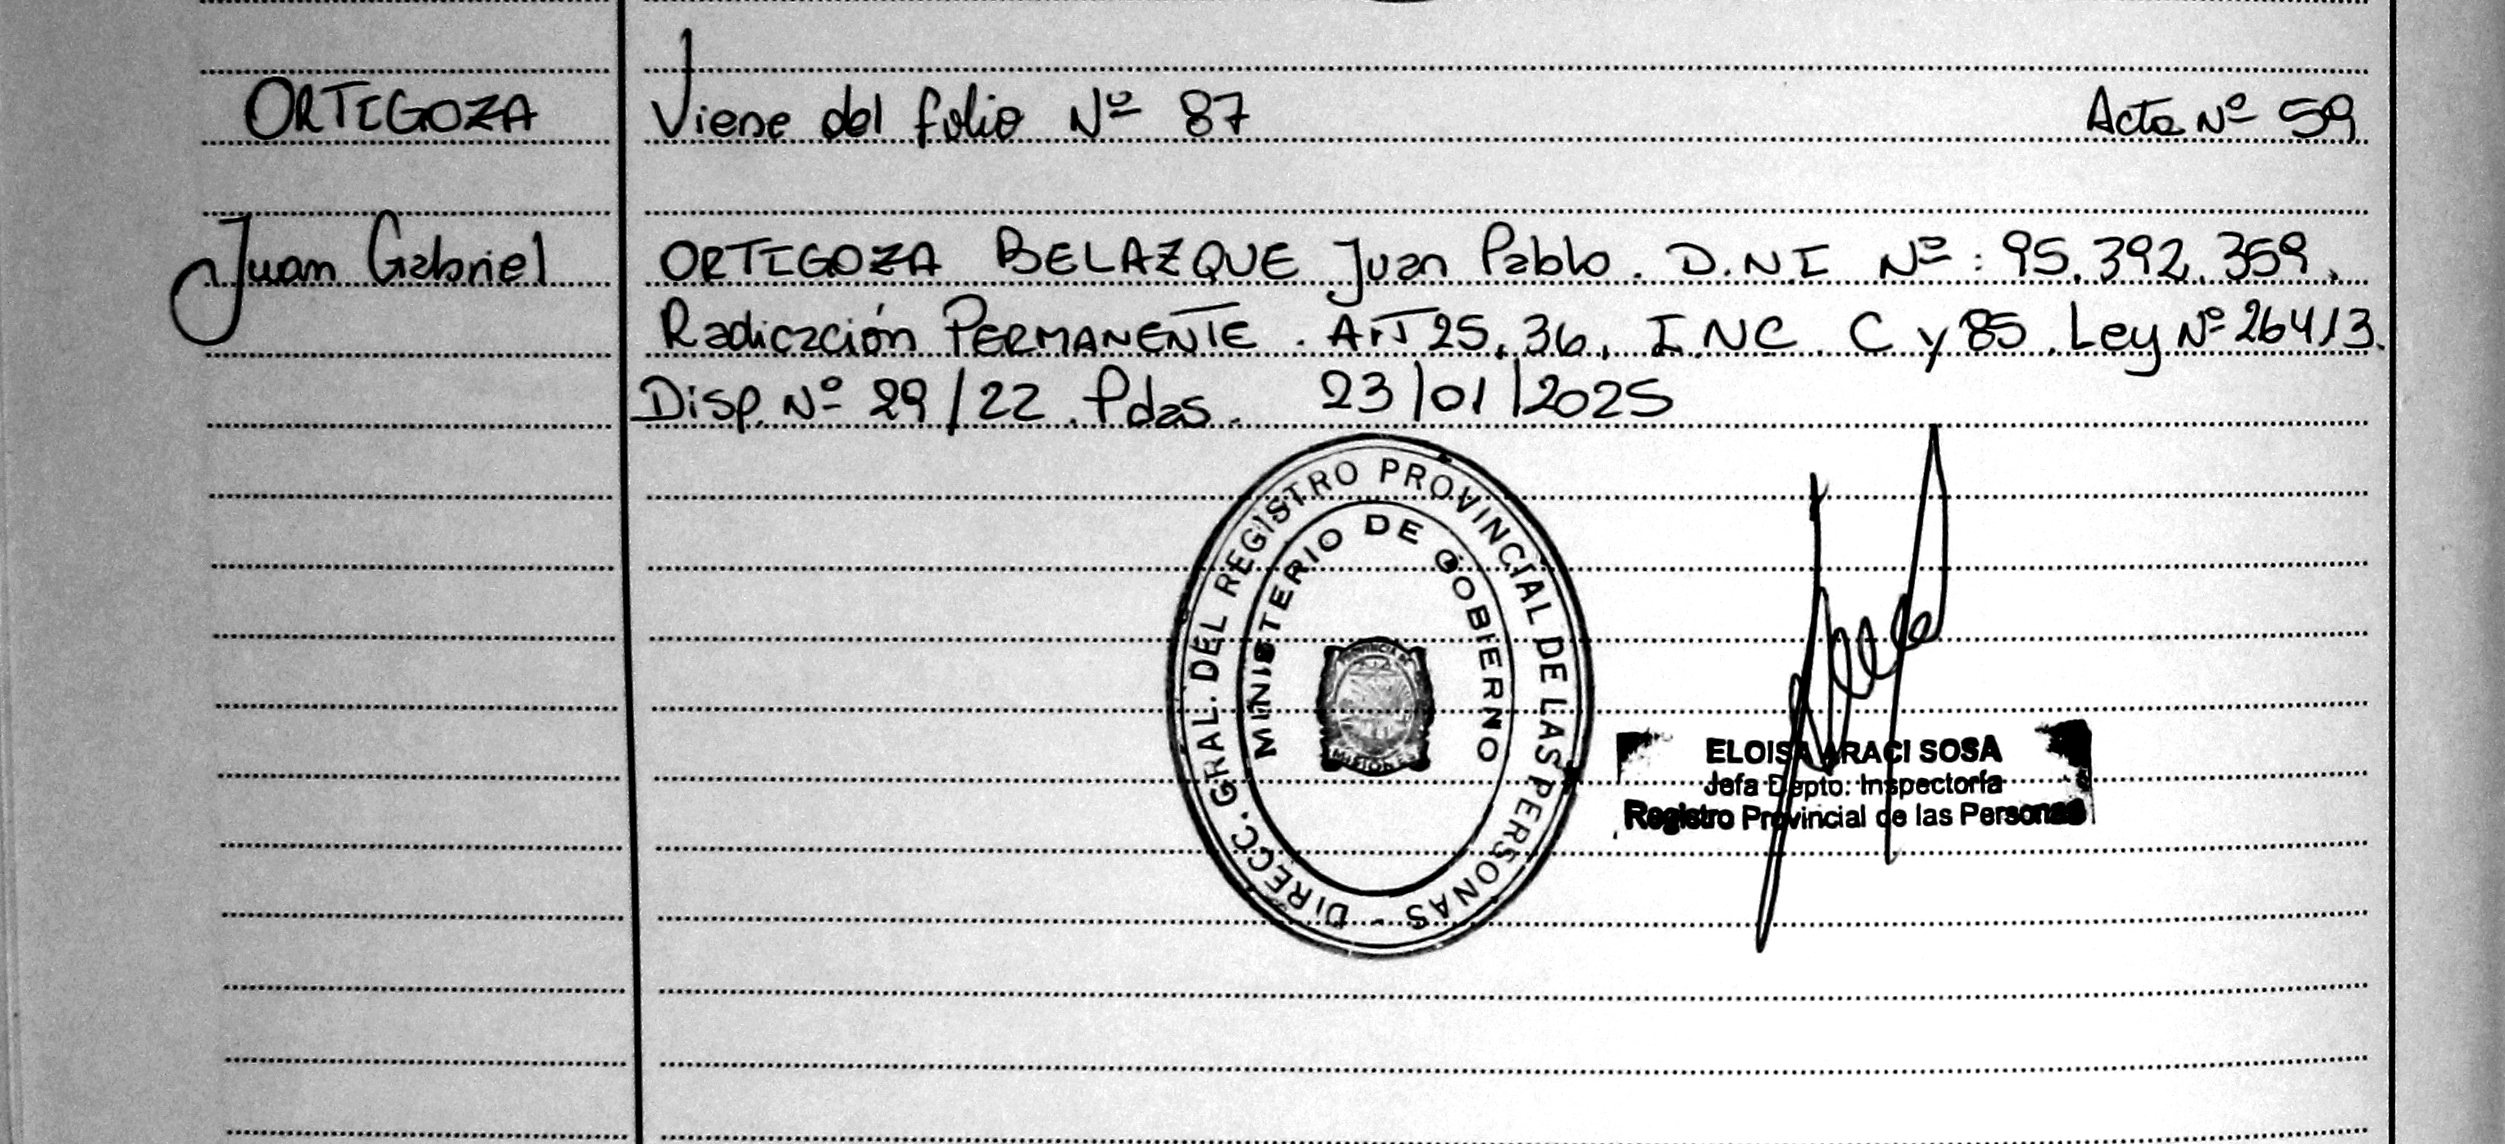 ORTIGOZA
Viene del folio Nº 87
Acta Nº 59
Juan Gabriel
ORTIGOZA BELAZQUE Juan Pablo. D.N.I Nº: 95.392.359.
Radicación PERMANENTE. Art 25, 36, INC C y 85. Ley Nº 26413.
Disp. Nº 29/22. Pdas. 23/01/2025
DIRECC. GRAL. DEL REGISTRO PROVINCIAL DE LAS PERSONAS -
MINISTERIO DE GOBIERNO
PROVINCIA DE
MISIONES
ELOISA ARACI SOSA
Jefa Depto. Inspectoría
Registro Provincial de las Personas